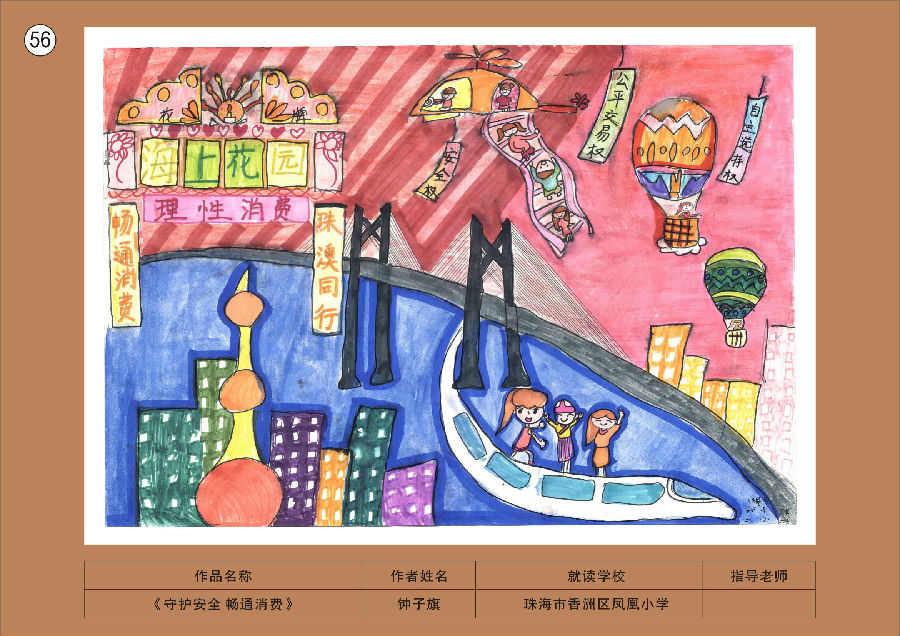 56
花 牌
海上花园
理性消费
畅通消费
珠澳同行
安全权
公平交易权
自主选择权
作品名称 作者姓名 就读学校 指导老师
《守护安全 畅通消费》 钟子旗 珠海市香洲区凤凰小学